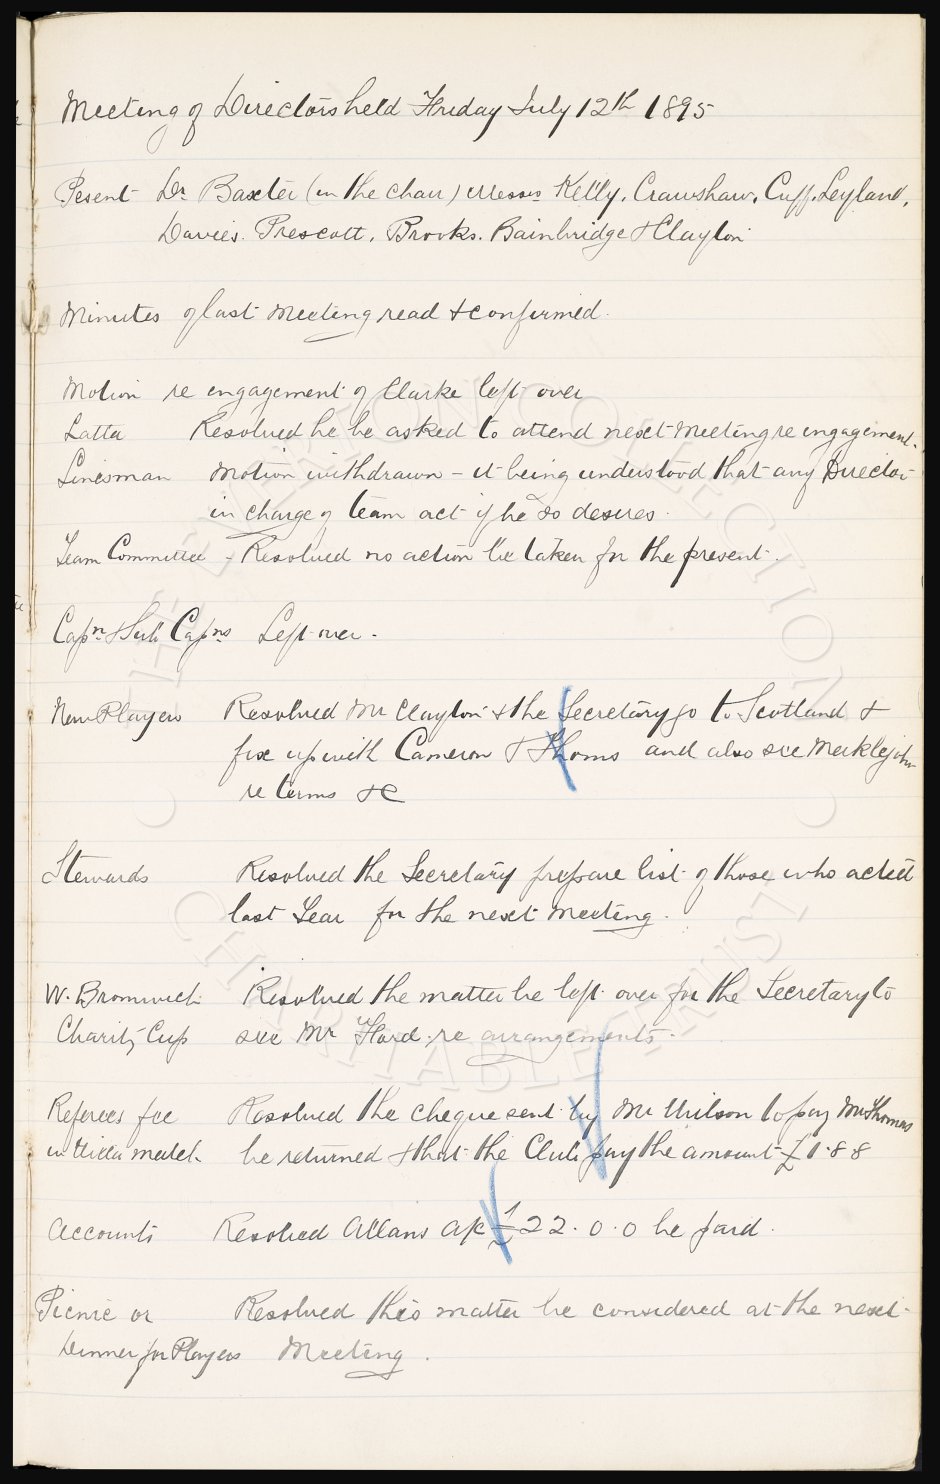 Meeting of Directors held Friday July 12th 1895
Present Dr Baxter (in the chair) Messrs Kelly, Crawshaw, Cuff, Leyland,
Davies. Prescott, Brooks. Bainbridge & Clayton
Minutes of last Meeting read & confirmed.
Motion re engagement of Clarke left over
Latta Resolved he be asked to attend next Meeting re engagement.
Linesman Motion withdrawn - it being understood that any Director
in charge of team act if he so desires.
Team Committee - Resolved no action be taken for the present.
Capn & Sub Capns Left over.
New Players Resolved Mr Clayton & the Secretary go to Scotland &
fix up with Cameron & Thoms and also see Meiklejohn
re terms &c
Stewards Resolved the Secretary prepare list of those who acted
last Year for the next Meeting.
W. Bromwich Resolved the matter be left over for the Secretary to
Charity Cup see Mr Ford re arrangements.
Referees fee Resolved the cheque sent by Mr Wilson to pay Mr Thomas
in Villa match he returned & that the Club pay the amount £1.8.8
Accounts Resolved Allans a/c £22.0.0 be paid.
Picnic or Resolved this matter be considered at the next
Dinner for Players Meeting.
THE EVERTON COLLECTION
CHARITABLE TRUST